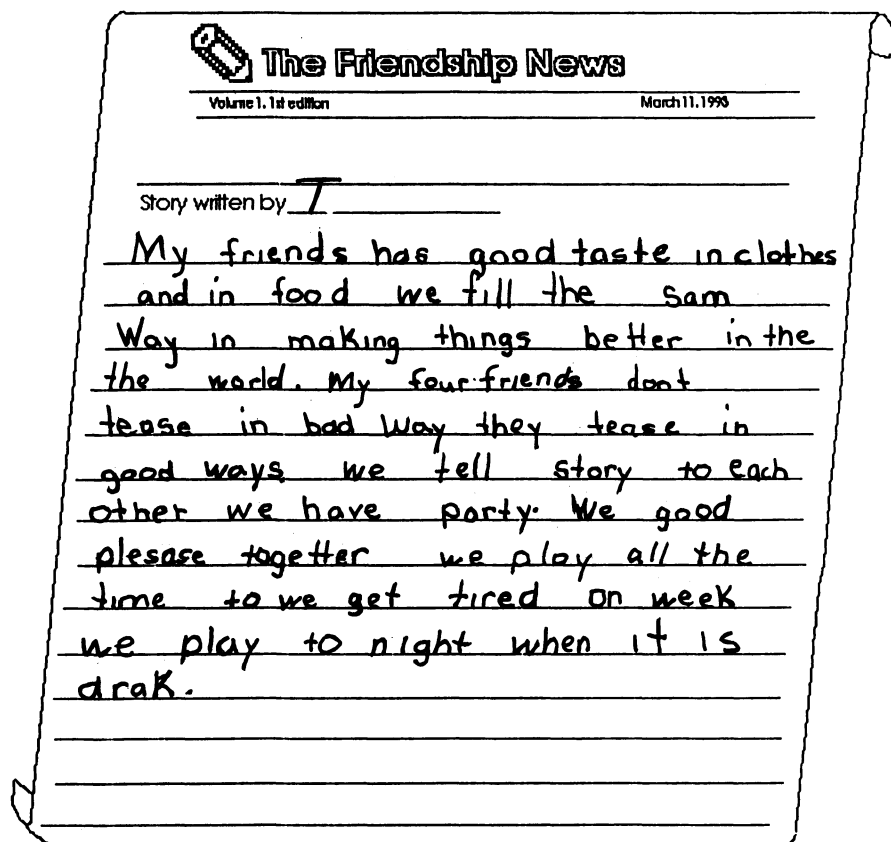 The Friendship News
Volume 1. 1st edition March 11, 1993
Story written by T
My friends has good taste in clothes
and in food we fill the sam
Way in making things better in the
the world. My four friends dont
tease in bad way they tease in
good ways we tell story to each
other we have party. We good
plesase togetter we play all the
time to we get tired on week
we play to night when it is
drak.